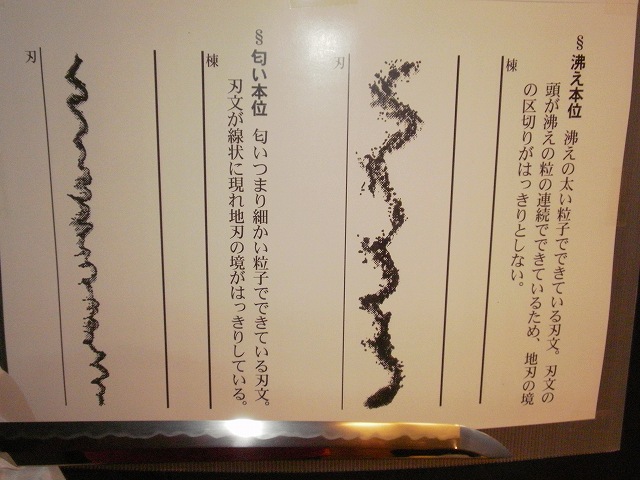 §沸え本位 沸えの太い粒子でできている刃文。刃文の
頭が沸えの粒の連続でできているため、地刃の境
の区切りがはっきりとしない。
棟
刃
§匂い本位 匂いつまり細かい粒子でできている刃文。
刃文が線状に現れ地刃の境がはっきりしている。
棟
刃